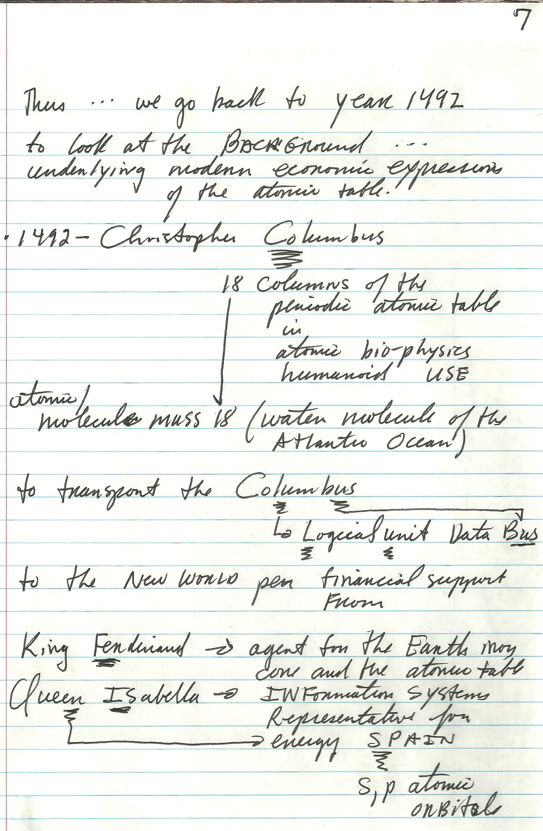 7
Thus ... we go back to year 1492
to look at the BACKGROUND ...
underlying modern economic expressions
of the atomic table.
• 1492 - Christopher Columbus
18 columns of the
periodic atomic table
in
atomic bio-physics
humanoid USE
atomic/
molecule mass 18 (water molecule of the
Atlantic Ocean)
to transport the Columbus
Logical unit Data Bus
to the NEW WORLD per financial support
From
King Ferdinand → agent for the Earth iron
core and the atomic table
Queen ISabella → INFormation Systems
Representative for
energy SPAIN
S, p atomic
orbitals